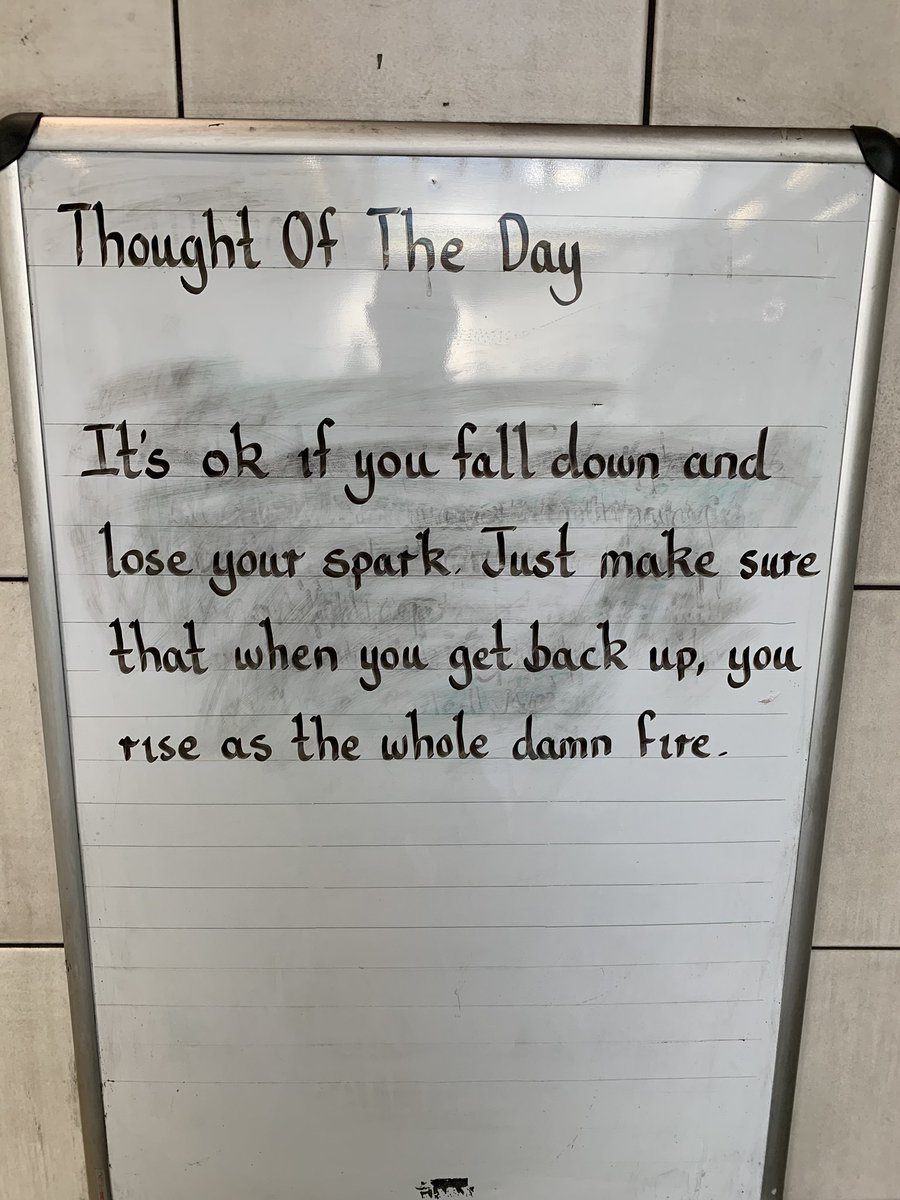 Thought Of The Day
It's ok if you fall down and
lose your spark. Just make sure
that when you get back up, you
rise as the whole damn fire.